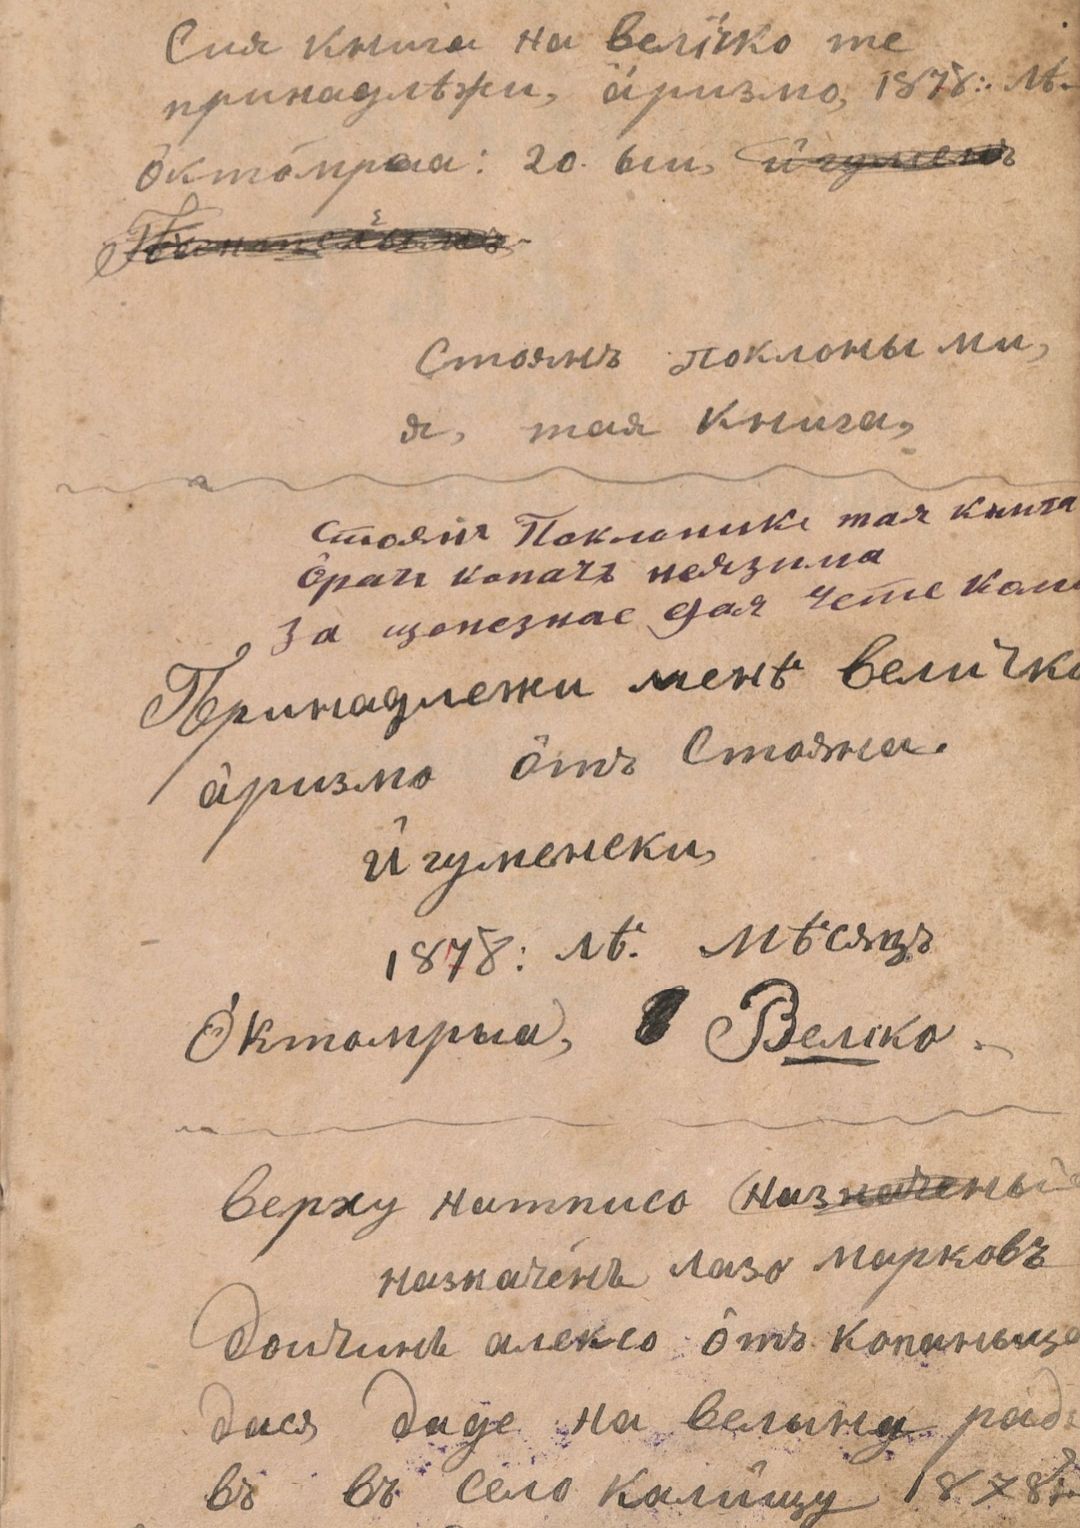 Сия книга на велічко те
принадлѣжи, а́ризмо, 1878:. лѣ.
о́ктомрıa: 20. ьıи,
Стоянъ поклоньı ми,
я, тая книга,
стоянъ Поклопике тая книга
о̂рачъ копачъ неязима
За щопезнае дая чете
Принадлежи менѣ величко
а̂ризмо о̂тъ Стояна.
и̂гуменски,
1878: лѣ. мѣсяцъ
О́ктомрьıа, Веліко.
верху натписо
назначе́нъ лазо марковъ
Дойчинъ алексо о̂тъ копаньıце
дася даде на
въ въ село калищу 1878: